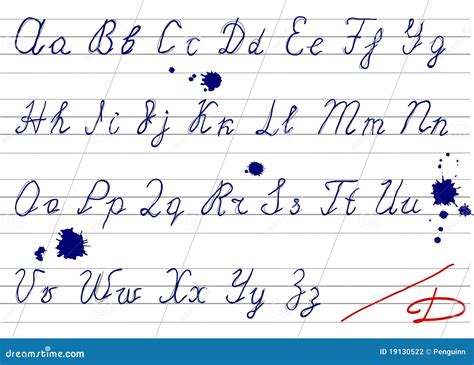 Aa Bb Cc Dd Ee Ff Gg
Hh Ii Jj Kk Ll Mm Nn
Oo Pp Qq Rr Ss Tt Uu
Vv Ww Xx Yy Zz
D
dreamstime.com
ID 19130522 © Penguinn